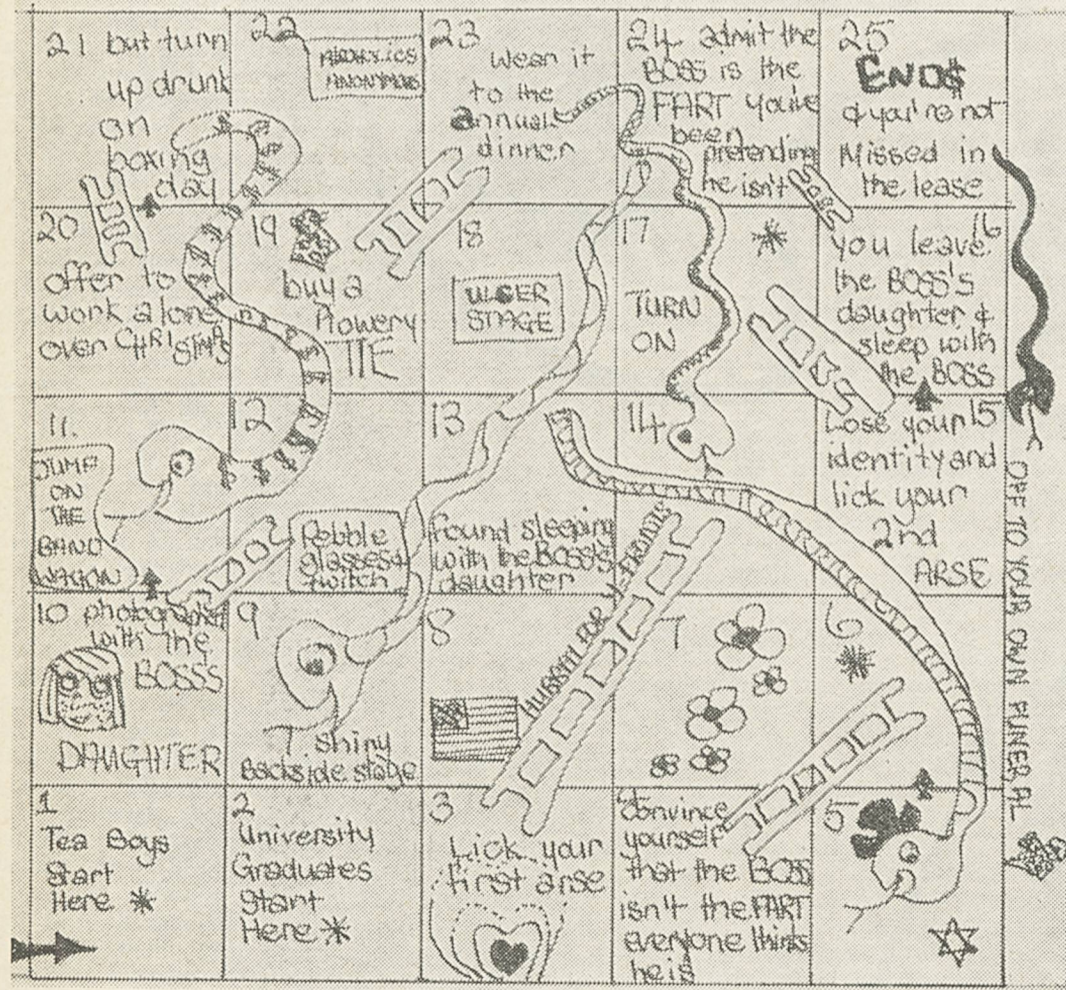 21 but turn
up drunk
on
boxing
day
22
ANONYMOUS
23
Wear it
to the
annual
dinner
24 admit the
BOSS is the
FART you've
been
pretending
he isn't
25
ENDS
& you're not
Missed in
the lease
20
offer to
work alone
over CHRISTMAS
19
buy a
flowery
TIE
18
ULCER
STAGE
17
TURN
ON
16
you leave
the BOSS's
daughter &
sleep with
the BOSS
11.
JUMP
ON
THE
BAND
WAGON
12
Pebble
glasses &
twitch
13
Found sleeping
with the BOSS's
daughter
14
15
Lose your
identity and
lick your
2nd
ARSE
10 photographed
with the
BOSS'S
DAUGHTER
9
T. shiny
Backside stage
8
HURRAH FOR Y-FRONTS
7
6
1
Tea Boys
Start
Here *
2
University
Graduates
Start
Here *
3
Lick your
first arse
Convince
yourself
that the BOSS
isn't the FART
everyone thinks
he is
5
OFF TO YOUR OWN FUNERAL